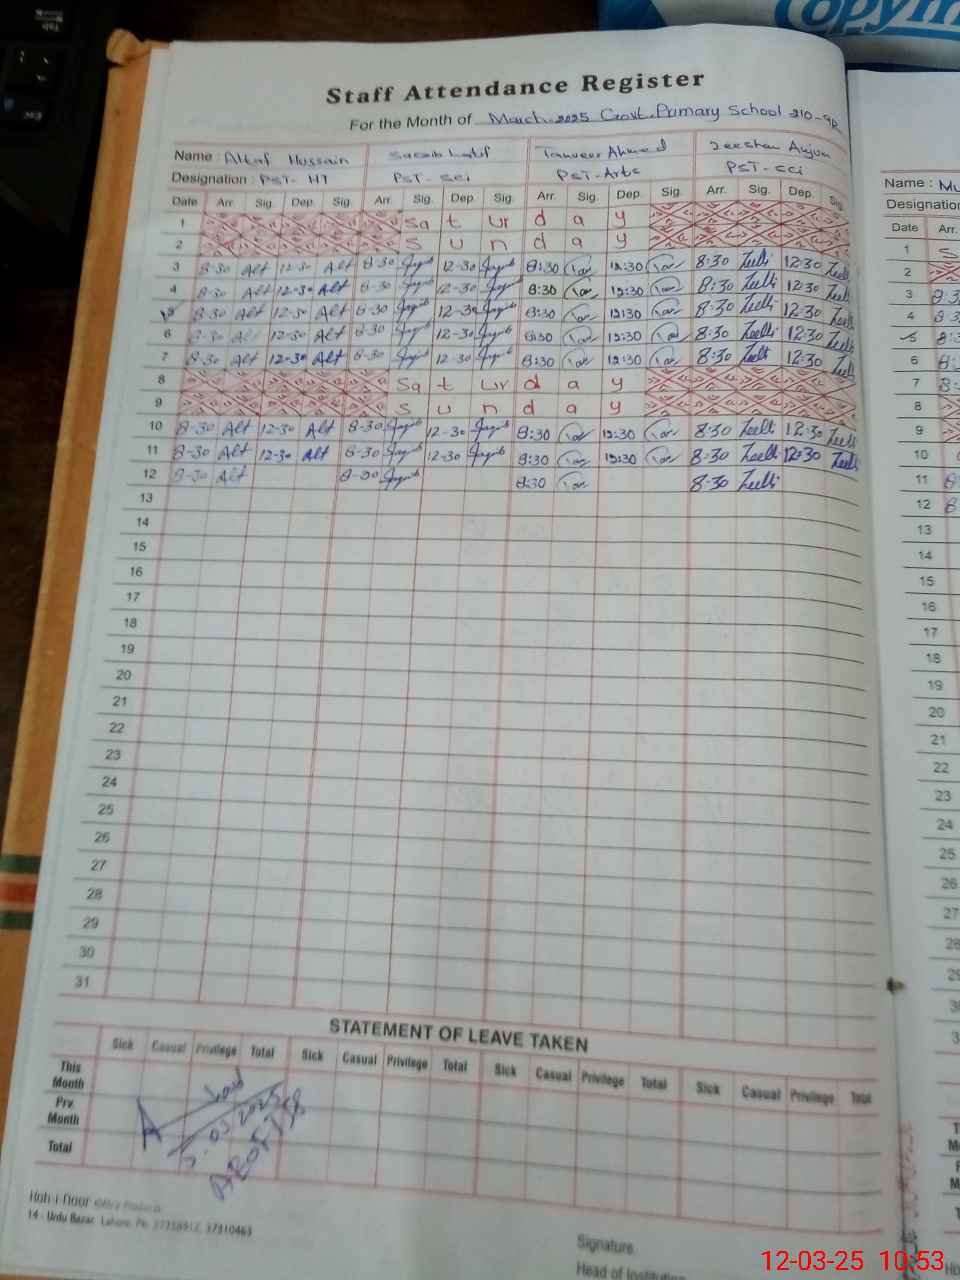 Copym
Staff Attendance Register
For the Month of March 2025 Govt. Primary School 210-9R
Name : Altaf Hussain Saqib Latif Tanveer Ahmed Zeeshan Anjum
Designation : PST-HT PST-Sci PST-Arts PST-Sci
Date Arr. Sig. Dep. Sig. Arr. Sig. Dep. Sig. Arr. Sig. Dep. Sig. Arr. Sig. Dep. Sig.
1 Sa t ur d a y
2 S u n d a y
3 8-30 Alt 12-30 Alt 8-30 12-30 8:30 12:30 8:30 12:30
4 8-30 Alt 12-30 Alt 8-30 12-30 8:30 12:30 8:30 12:30
5 8-30 Alt 12-30 Alt 8-30 12-30 8:30 12:30 8:30 12:30
6 8-30 Alt 12-30 Alt 8-30 12-30 8:30 12:30 8:30 12:30
7 8-30 Alt 12-30 Alt 8-30 12-30 8:30 12:30 8:30 12:30
8 Sa t ur d a y
9 S u n d a y
10 8-30 Alt 12-30 Alt 8-30 12-30 8:30 12:30 8:30 12:30
11 8-30 Alt 12-30 Alt 8-30 12-30 8:30 12:30 8:30 12:30
12 8-30 Alt 8-30 8:30 8-30
13
14
15
16
17
18
19
20
21
22
23
24
25
26
27
28
29
30
31
STATEMENT OF LEAVE TAKEN
Sick Casual Privilege Total Sick Casual Privilege Total Sick Casual Privilege Total Sick Casual Privilege Total
This Month
Prv. Month
Total
5.03.2025
Koh-i-Noor
14 - Urdu Bazar, Lahore. Ph: 37310463
Signature.
Head of Institution
Name : Mu
Designation
Date Arr.
1 S
2
3 8:3
4 8:3
5 8:
6 8:
7 8:
8
9
10
11 8
12 8
13
14
15
16
17
18
19
20
21
22
23
24
25
26
27
28
29
12-03-25 10:53